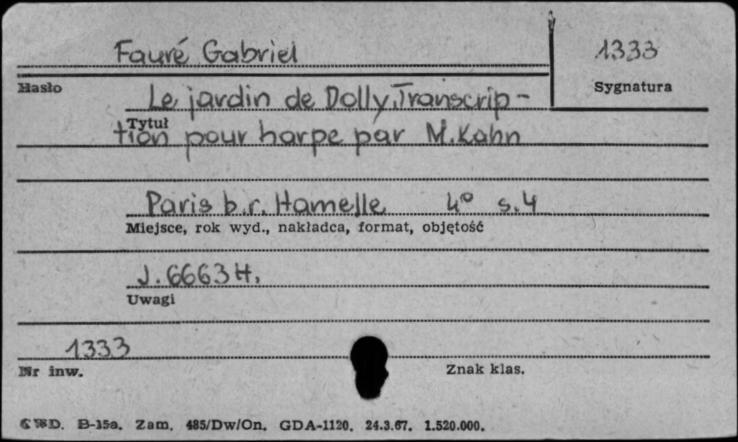 Fauré Gabriel
1333
Hasło
Sygnatura
Le jardin de Dolly. Transcrip-
Tytuł
tion pour harpe par M. Kahn
Paris b.r. Hamelle 4° s.4
Miejsce, rok wyd., nakładca, format, objętość
J. 6663 H.
Uwagi
1333
Nr inw.
Znak klas.
CWD. B-15a. Zam. 485/Dw/On. GDA-1120. 24.3.67. 1.520.000.